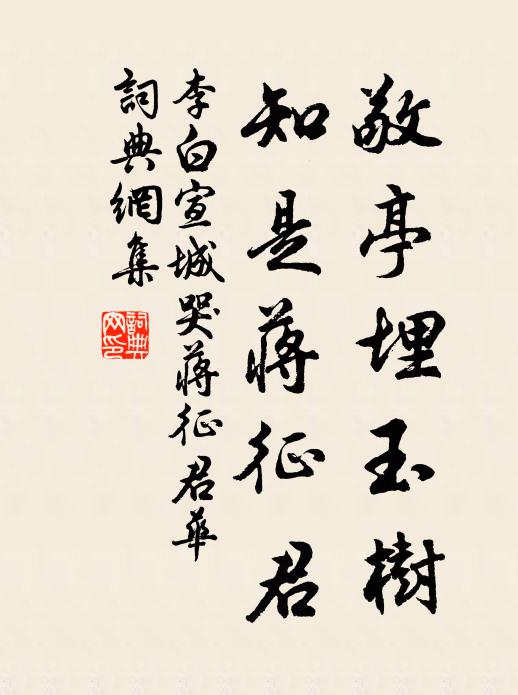 敬亭埋玉樹
知是蔣征君
李白宣城哭蔣征君華
詞典網集
詞典網印